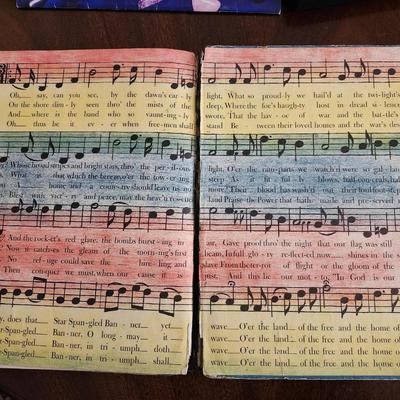 Oh,___ say, can you see, by the dawn's ear - ly
On the shore dim - ly seen thro' the mists of the
And where is the band who so vaunt - ing - ly
Oh,___ thus be it ev - er when free - men shall
Whose broad stripes and bright stars, thro' the per - il - ous
What is that which the breeze, o'er the tow - er - ing
A home and a coun - try should leave us no
Blest with vic - t'ry and peace, may the heav'n res - cued
And the rock - et's red glare, the bombs burst - ing in
Now it catch - es the gleam of the morn - ing's first
No ref - uge could save the hire - ling and
Then conquer we must, when our cause it is
y, does that Star Span - gled Ban - ner, yet___
r - Span - gled___ Ban - ner, O long - may it
r - Span - gled___ Ban - ner, in tri - umph doth
r - Span - gled___ Ban - ner, in tri - umph shall___
light, What so proud - ly we hail'd at the twi - light's
deep, Where the foe's haugh - ty host in dread si - lence
swore, That the hav - oc of war and the bat - tle's
stand Be - tween their loved homes and the war's des
light, O'er the ram - parts we watch'd were so gal - lan
steep As it fit - ful - ly blows, half con - ceals, half
more? Their blood has wash'd out their foul foot - step
Land Praise the Pow'r that hath made and pre - served
air, Gave proof thro' the night that our flag was still
beam, In full glo - ry re - flect - ed now shines in the s
slave From the ter - ror of flight or the gloom of the
just, And this be our mot - to, "In God is our
wave___ O'er the land___ of the free and the home of
wave___ O'er the land___ of the free and the home of
wave___ O'er the land___ of the free and the home of
wave___ O'er the land___ of the free and the home of